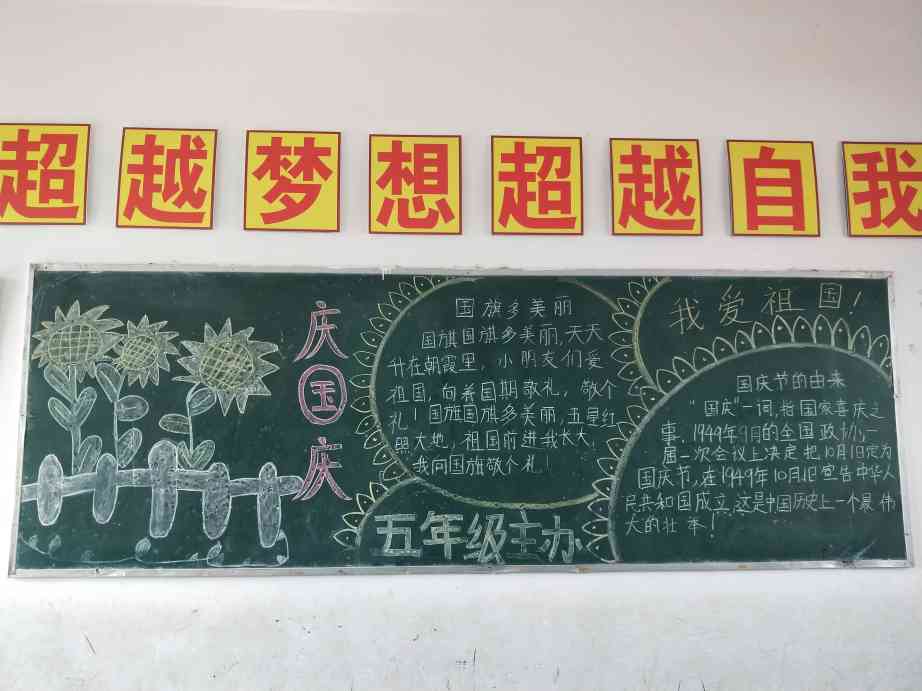 超越梦想超越自我
庆国庆
国旗多美丽
国旗国旗多美丽,天天
升在朝霞里,小朋友们爱
祖国,向着国期敬礼,敬个
礼!国旗国旗多美丽,五星红
照大地,祖国前进我长大,
我向国旗敬个礼!
五年级主办
我爱祖国!
国庆节的由来
"国庆"一词,指国家喜庆之
事.1949年9月的全国政协,一
届一次会议上决定把10月1日定为
国庆节,在1949年10月1日宣告中华人
民共和国成立,这是中国历史上一个最伟
大的壮举!